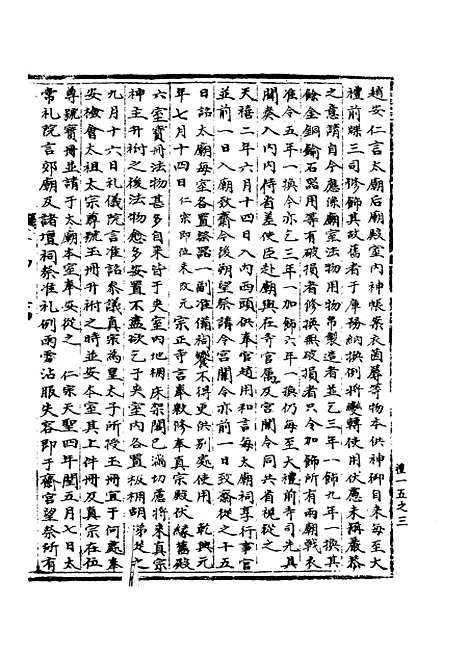 趙安仁言太廟后廟殿室內神帳案衣茵蓐等物本供神御自來每至大
禮前蹀三司修飾其故舊者于庫務納換例將變轉使用伏慮未稱嚴恭
之意請自今應係廟室法物用物吊製造者並乞三年一飾九年一換其
餘金銅鍮石器用等有破損者修換無破損者只令加飾所有兩廟戟衣
准令五年一換今亦乞三年一加飾六年一換仍每至大禮前寺司先具
聞奏入內內侍省差使臣赴廟與在寺官屬及宮闈令同共省視從之
天禧二年六月十四日入內西頭供奉官趙用和言每太廟祠享行事官
並前一日入廟致齋令後朔望祭請令宮闈令亦前一日致齋從之十五
日詔太廟每室各置祭器一副准備祠饗不得更供別處使用 乾興元
年七月十四日仁宗即位未改元宗正寺言奉敕修奉真宗殿伏緣舊殿
六室寶冊法物甚多自來皆于夾室內地棚床架閣已滿切慮將來真宗
神主升祔之後法物愈多安置不盡欲乞于夾室內各置板棚胡梯從之
九月十六日礼儀院言准詔參議真宗為皇太子所授玉冊宜于何處奉
安檢會太祖太宗尊號玉冊升祔之時並安本室其上件冊及真宗在位
尊號寶冊並請于太廟本室奉安從之 仁宗天聖四年閏五月七日太
常礼院言郊廟及諸壇祠祭准礼例雨霑沾服失容即于齋宮望祭所有
禮一五之三